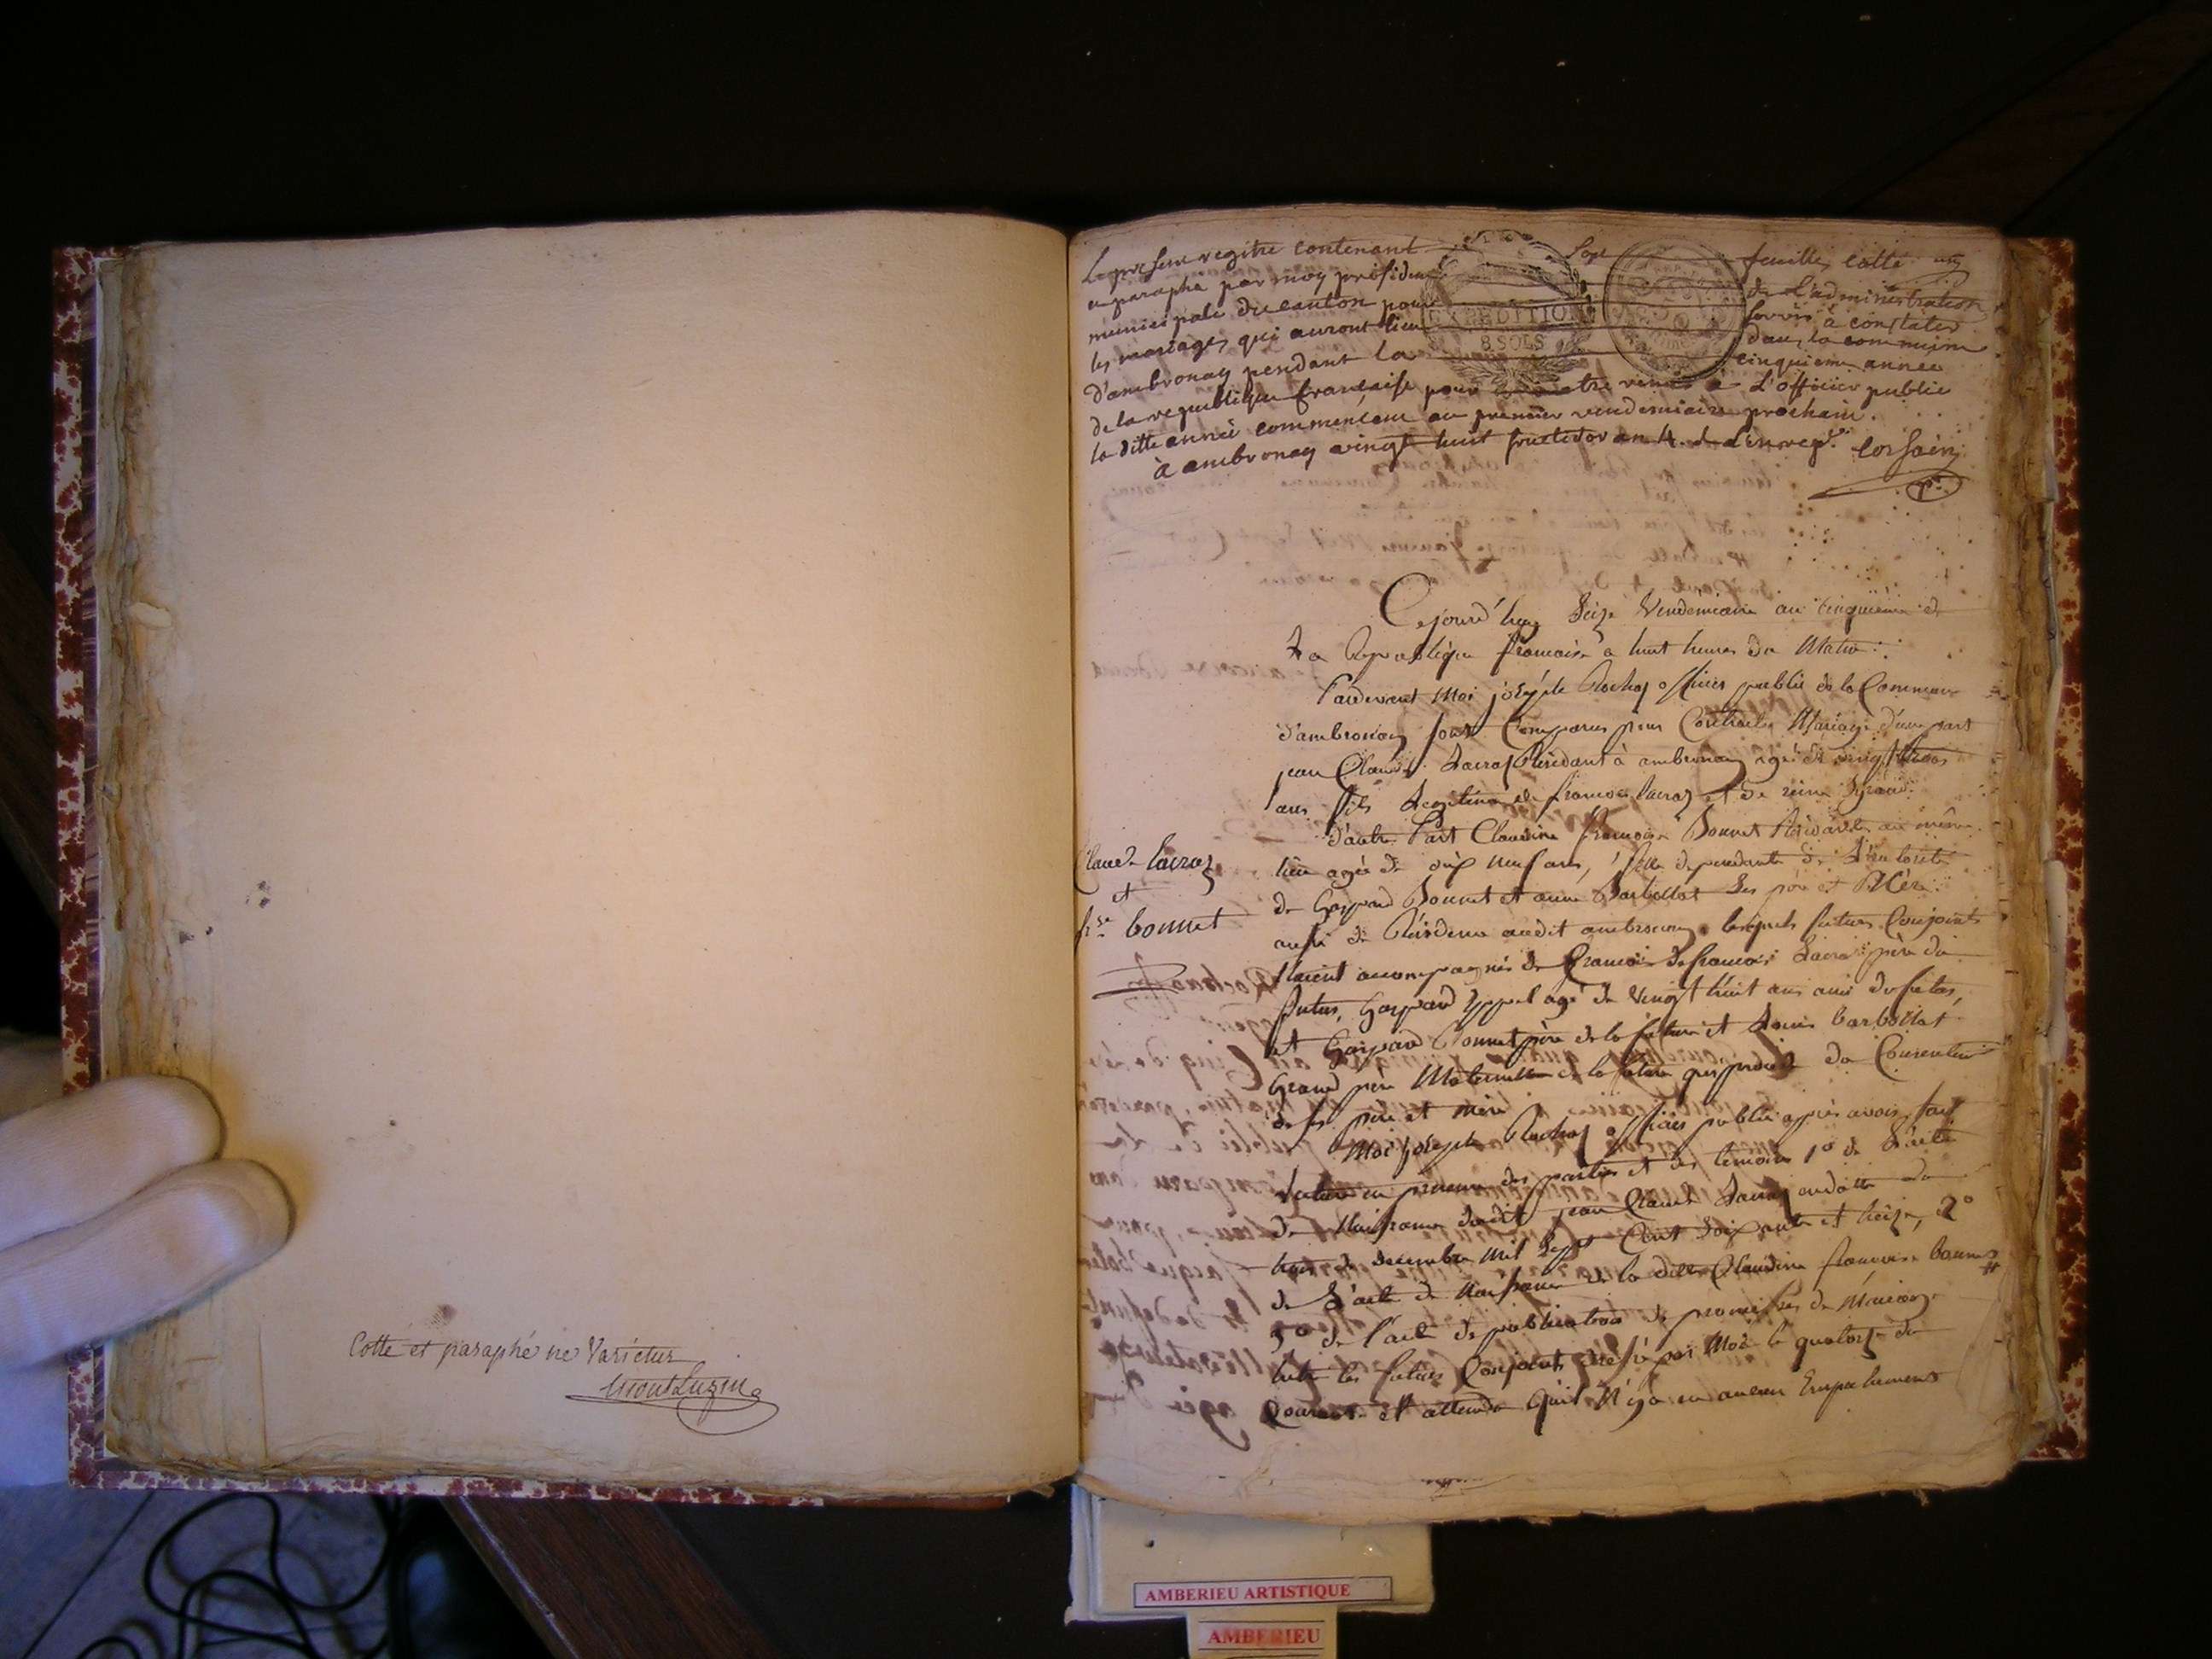 Cotté et paraphé ne Varietur
MontLuzin
Le present registre contenant sept feuilles cotté
et paraphé par moy président de L'administration
municipale du canton pour servir à constater
les mariages qui auront lieu dans la commune
d'ambronay pendant la cinquieme année
de la republique francaise pour etre remis à L'officier public
la ditte année commencant au premier vendemiaire prochain.
à ambronay vingt huit fructidor an 4. de L'ere rep.
EXPEDITION
8 SOLS
Cejourd'huy Seize Vendémiaire an cinquième de
La République francaise à huit heures du Matin
Pardevant Moi joseph Rochas officier public de la Commune
d'ambronay sont Comparus pour Contracter Mariage d'une part
jean Claude Lacraz Résidant à ambronay agé de vingt trois
ans fils Legitime de francois lacraz et de reine
d'autre Part Claudine francoise Bonnet Résidante au même
lieu agée de dix neuf ans, fille dependante de L'autorité
de Gaspard Bonnet et anne Barbollat Ses père et Mère
aussi de Résidence audit ambronay, lesquels futurs Conjoints
étaient accompagnés de francois Lacraz père du
futur, Gaspard agé de vingt huit ans ami du futur,
et Gaspard Bonnet père de la future et Louis barbollat
Grand père Maternelle de la future du Consentement
de ses père et mère
Moi joseph Rochas officier public après avoir fait
lecture en présence des parties et des temoins 1° de L'acte
de Naissance dudit jean Claude Lacraz en datte du
huit decembre Mil Sept Cent Soixante et treize, 2°
de L'acte de Naissance de la ditte Claudine francoise bonnet
3° de l'acte de publication de promesses de Mariage
entre les futurs Conjoints dressé par Moi le quatorze du
Courant et attendu qu'il N'y a eu aucun Empechement
Claude lacraz
et
fse bonnet
AMBERIEU ARTISTIQUE
AMBERIEU